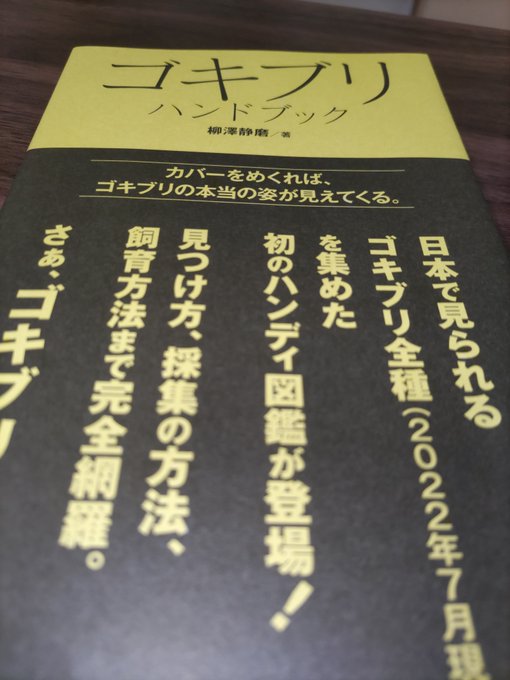 ゴキブリ
ハンドブック
柳澤静磨／著
カバーをめくれば、
ゴキブリの本当の姿が見えてくる。
日本で見られる
ゴキブリ全種(2022年7月現
を集めた
初のハンディ図鑑が登場！
見つけ方、採集の方法、
飼育方法まで完全網羅。
さぁ、ゴキブリ